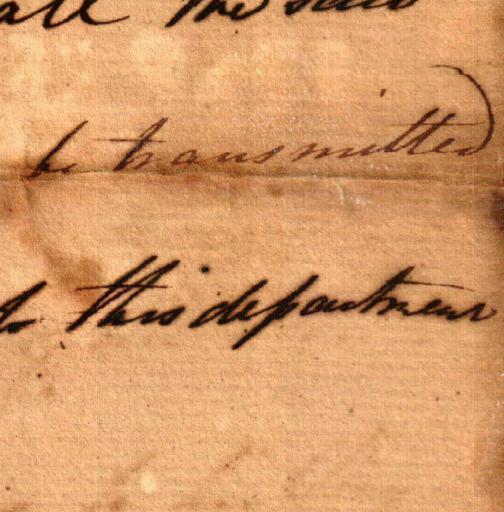 all the said
be transmitted
to this department